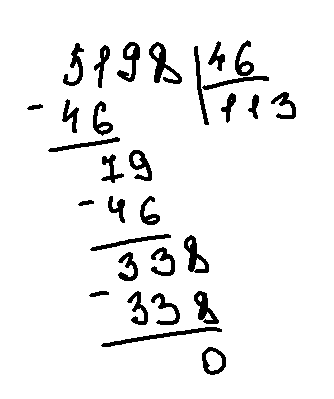 5198 46
- 46 113
79
- 46
338
- 338
0